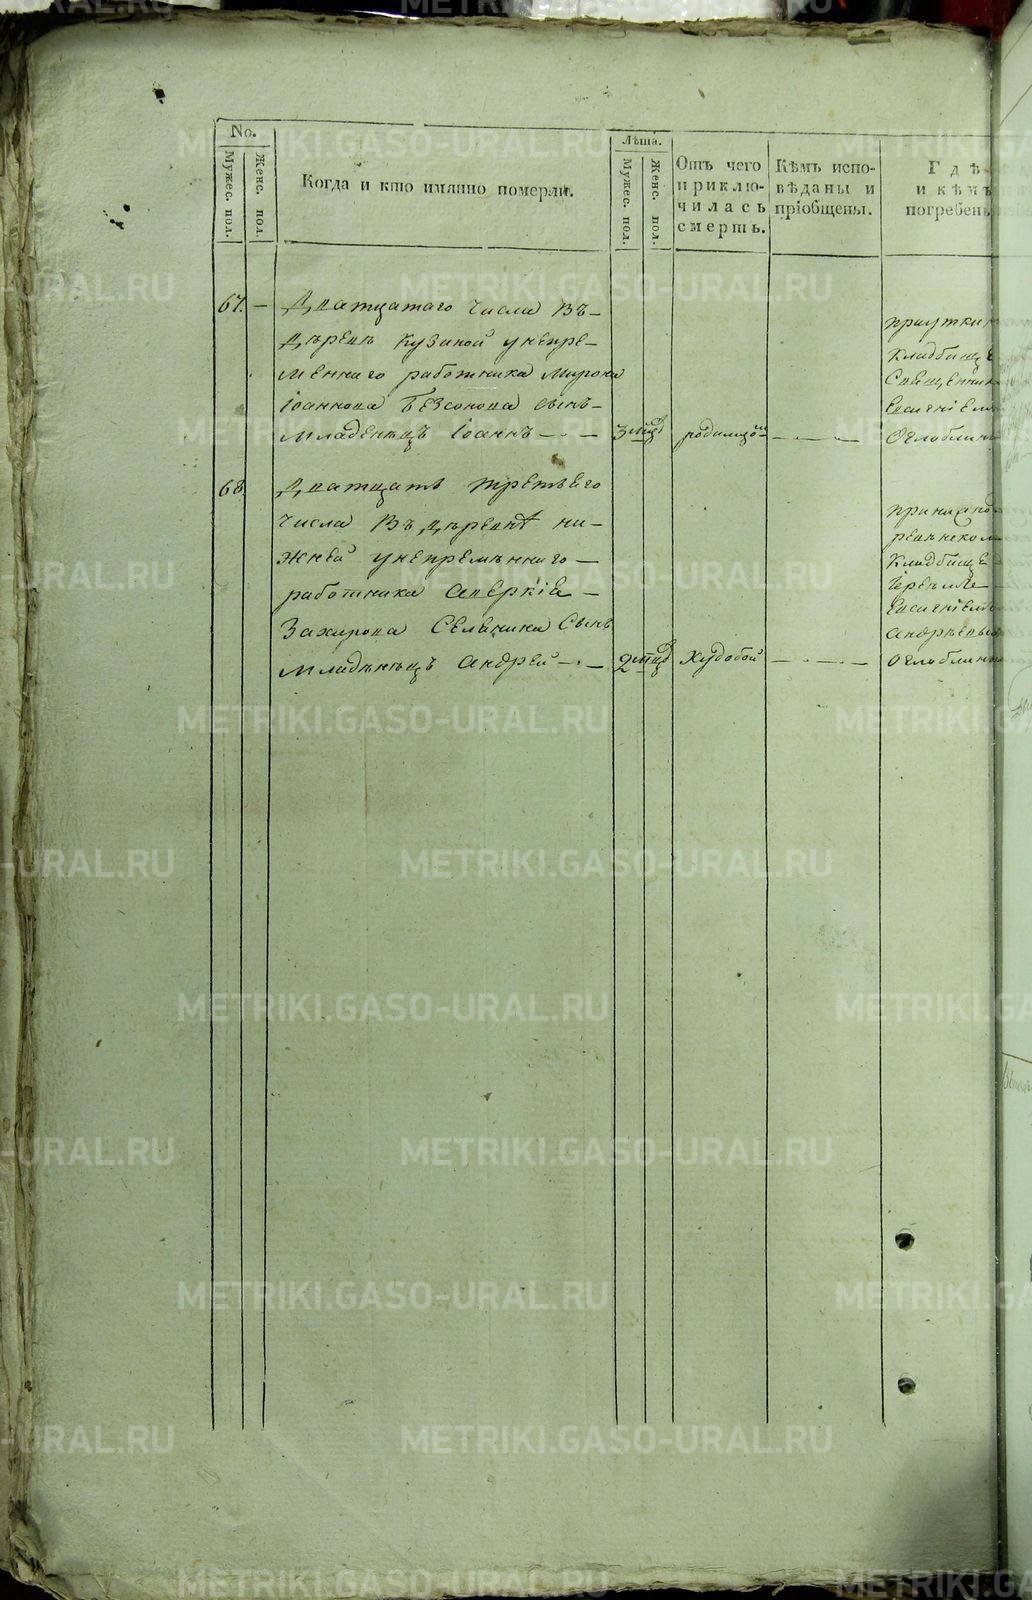 No.
Мужес. пол.
Женс. пол.
Когда и кто имянно померли.
Лѣта.
Мужес. пол.
Женс. пол.
Отъ чего
приклю-
чилась
смерть.
Кѣмъ испо-
вѣданы и
пріобщены.
Гдѣ
и кѣмъ
погребены
67. — Дватцатаго числа въ-
дѣревнѣ Кузиной унепре-
меннаго работника Мирона
Іоаннова Безсонова сынъ-
младенецъ Іоаннъ — · — 3 мцѣ родимцомъ — · —
приуткин
кладбище
Священник
Евсигніемъ
Оглоблин
68. Дватцать третьего
числа въ дѣревнѣ ни-
жней унепремѣннаго —
работника Аверкіе —
Захарова Селенина сынъ
младѣнецъ Андрей — · — 2 мцѣ худобой — · —
кладбище
Іереемъ
Евсигніемъ
Андрѣевы
Оглоблин
METRIKI.GASO-URAL.RU